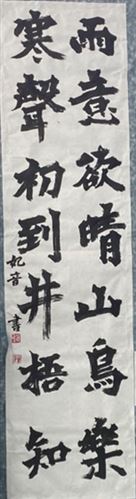 雨意欲晴山鳥樂
寒聲初到井梧知
音書